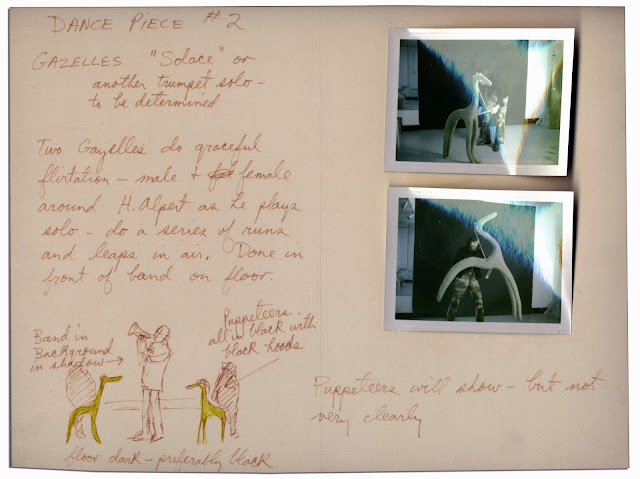 DANCE PIECE #2
GAZELLES "Solace" or
another trumpet solo—
to be determined
Two Gazelles do graceful
flirtation — male + female
around H. Alpert as he plays
solo — do a series of runs
and leaps in air. Done in
front of band on floor.
Band in
Background
in shadow→
Puppeteers
all in black with
black hoods
floor dark — preferably black
Puppeteers will show — but not
very clearly